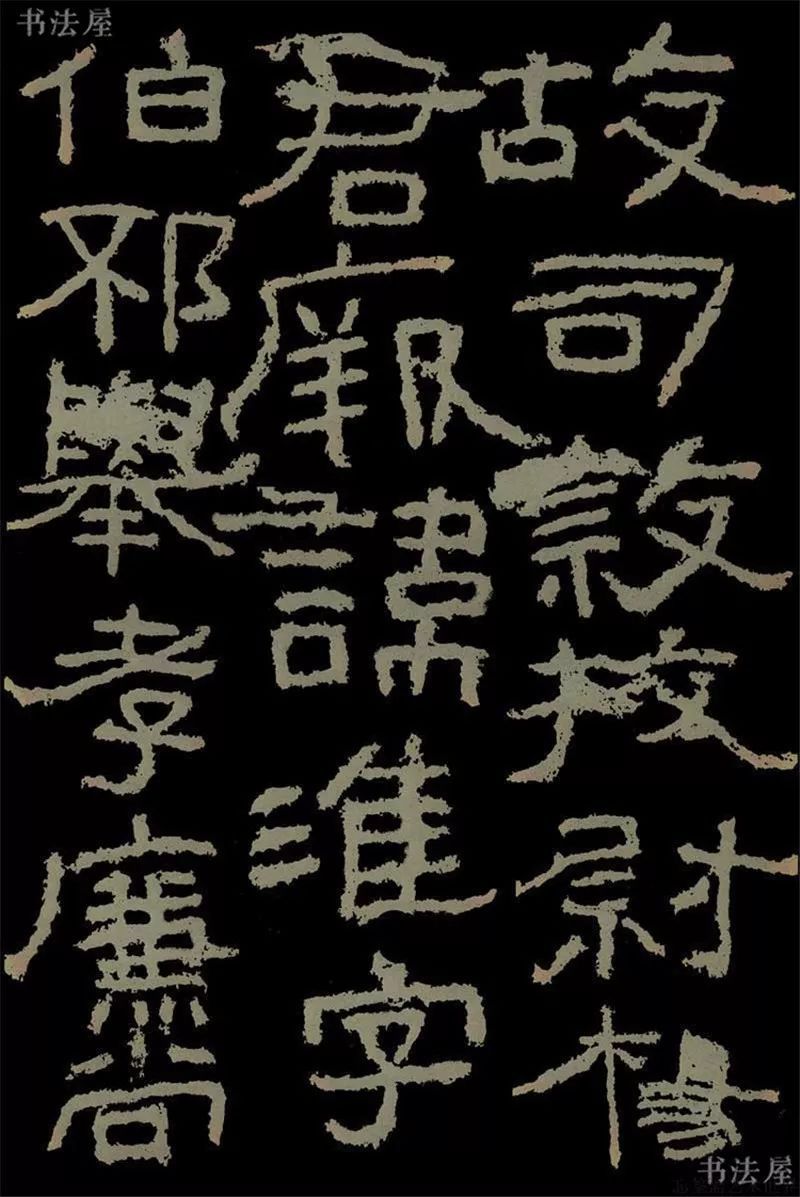 书法屋
故司隸校尉楊
君厥諱淮字
伯邳舉孝廉尚
书法屋